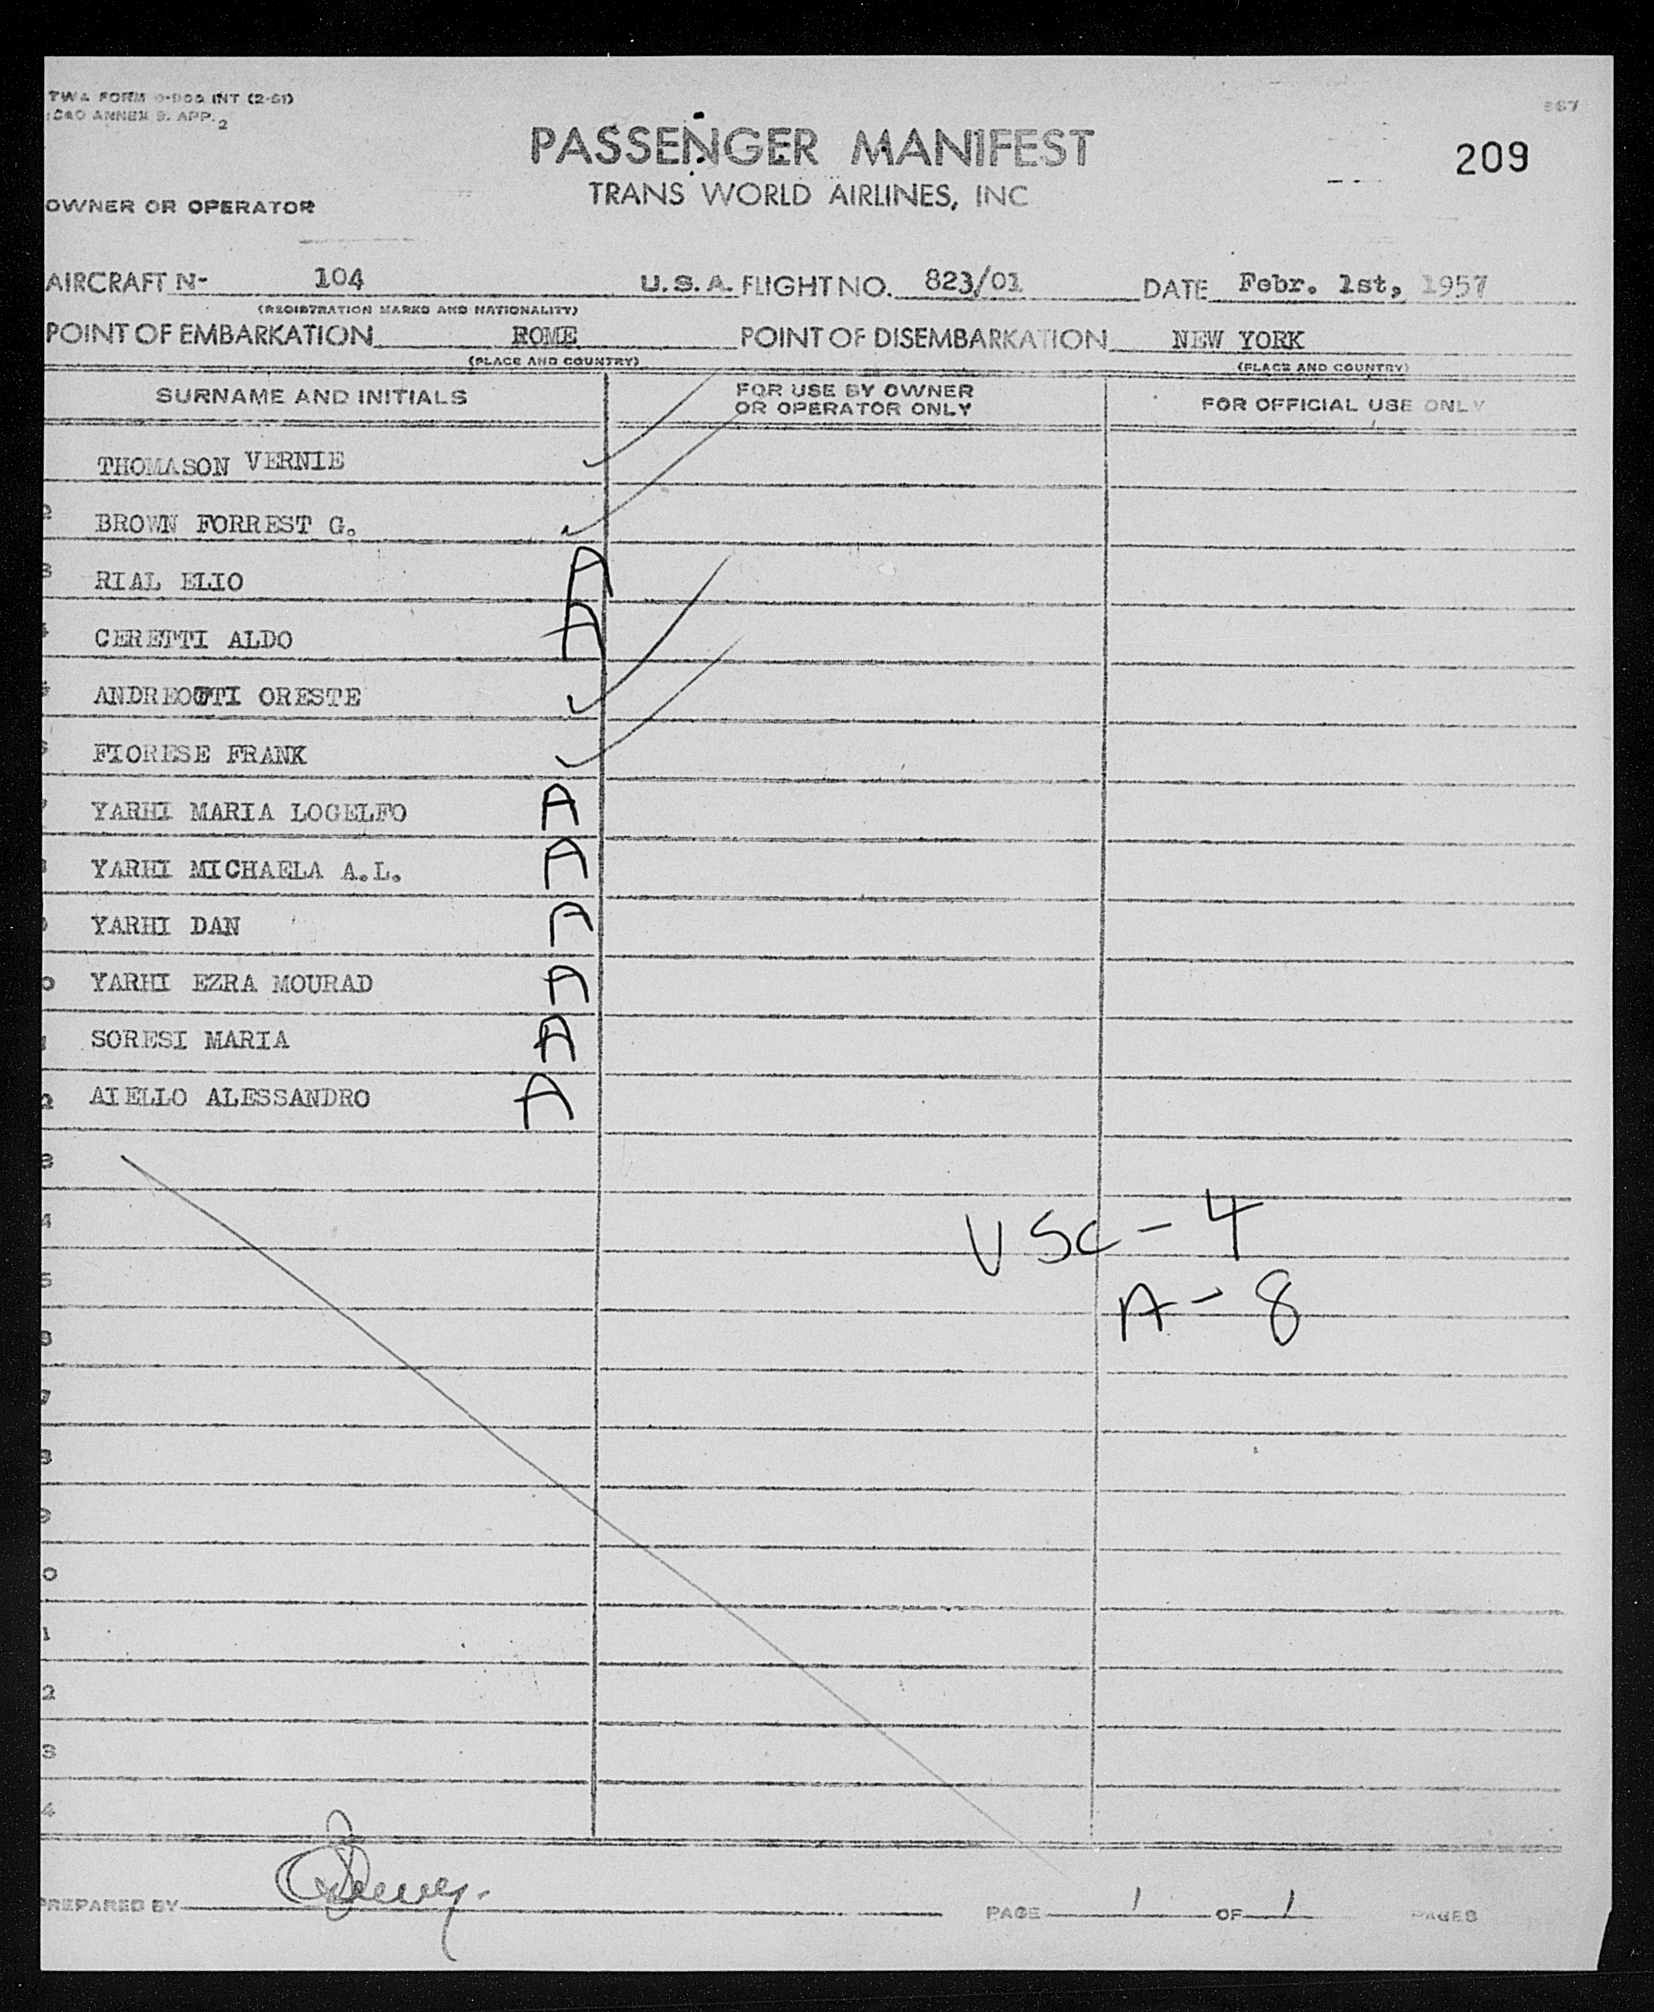 TWA FORM INT (2-51)
ICAO ANNEX 9. APP. 2
867
PASSENGER MANIFEST
209
TRANS WORLD AIRLINES, INC
OWNER OR OPERATOR
AIRCRAFT N- 104 U.S.A. FLIGHT NO. 823/01 DATE Febr. 1st, 1957
(REGISTRATION MARKS AND NATIONALITY)
POINT OF EMBARKATION ROME POINT OF DISEMBARKATION NEW YORK
(PLACE AND COUNTRY) (PLACE AND COUNTRY)
SURNAME AND INITIALS FOR USE BY OWNER OR OPERATOR ONLY FOR OFFICIAL USE ONLY
THOMASON VERNIE ✓
2 BROWN FORREST G. ✓
3 RIAL ELIO A
4 CERETTI ALDO A
5 ANDREOTTI ORESTE ✓
6 FIORESE FRANK ✓
7 YARHI MARIA LOGELFO A
8 YARHI MICHAELA A.L. A
9 YARHI DAN A
0 YARHI EZRA MOURAD A
1 SORESI MARIA A
2 AIELLO ALESSANDRO A
3
4 USC - 4
5 A - 8
6
7
8
9
0
1
2
3
4
PREPARED BY PAGE 1 OF 1 PAGES